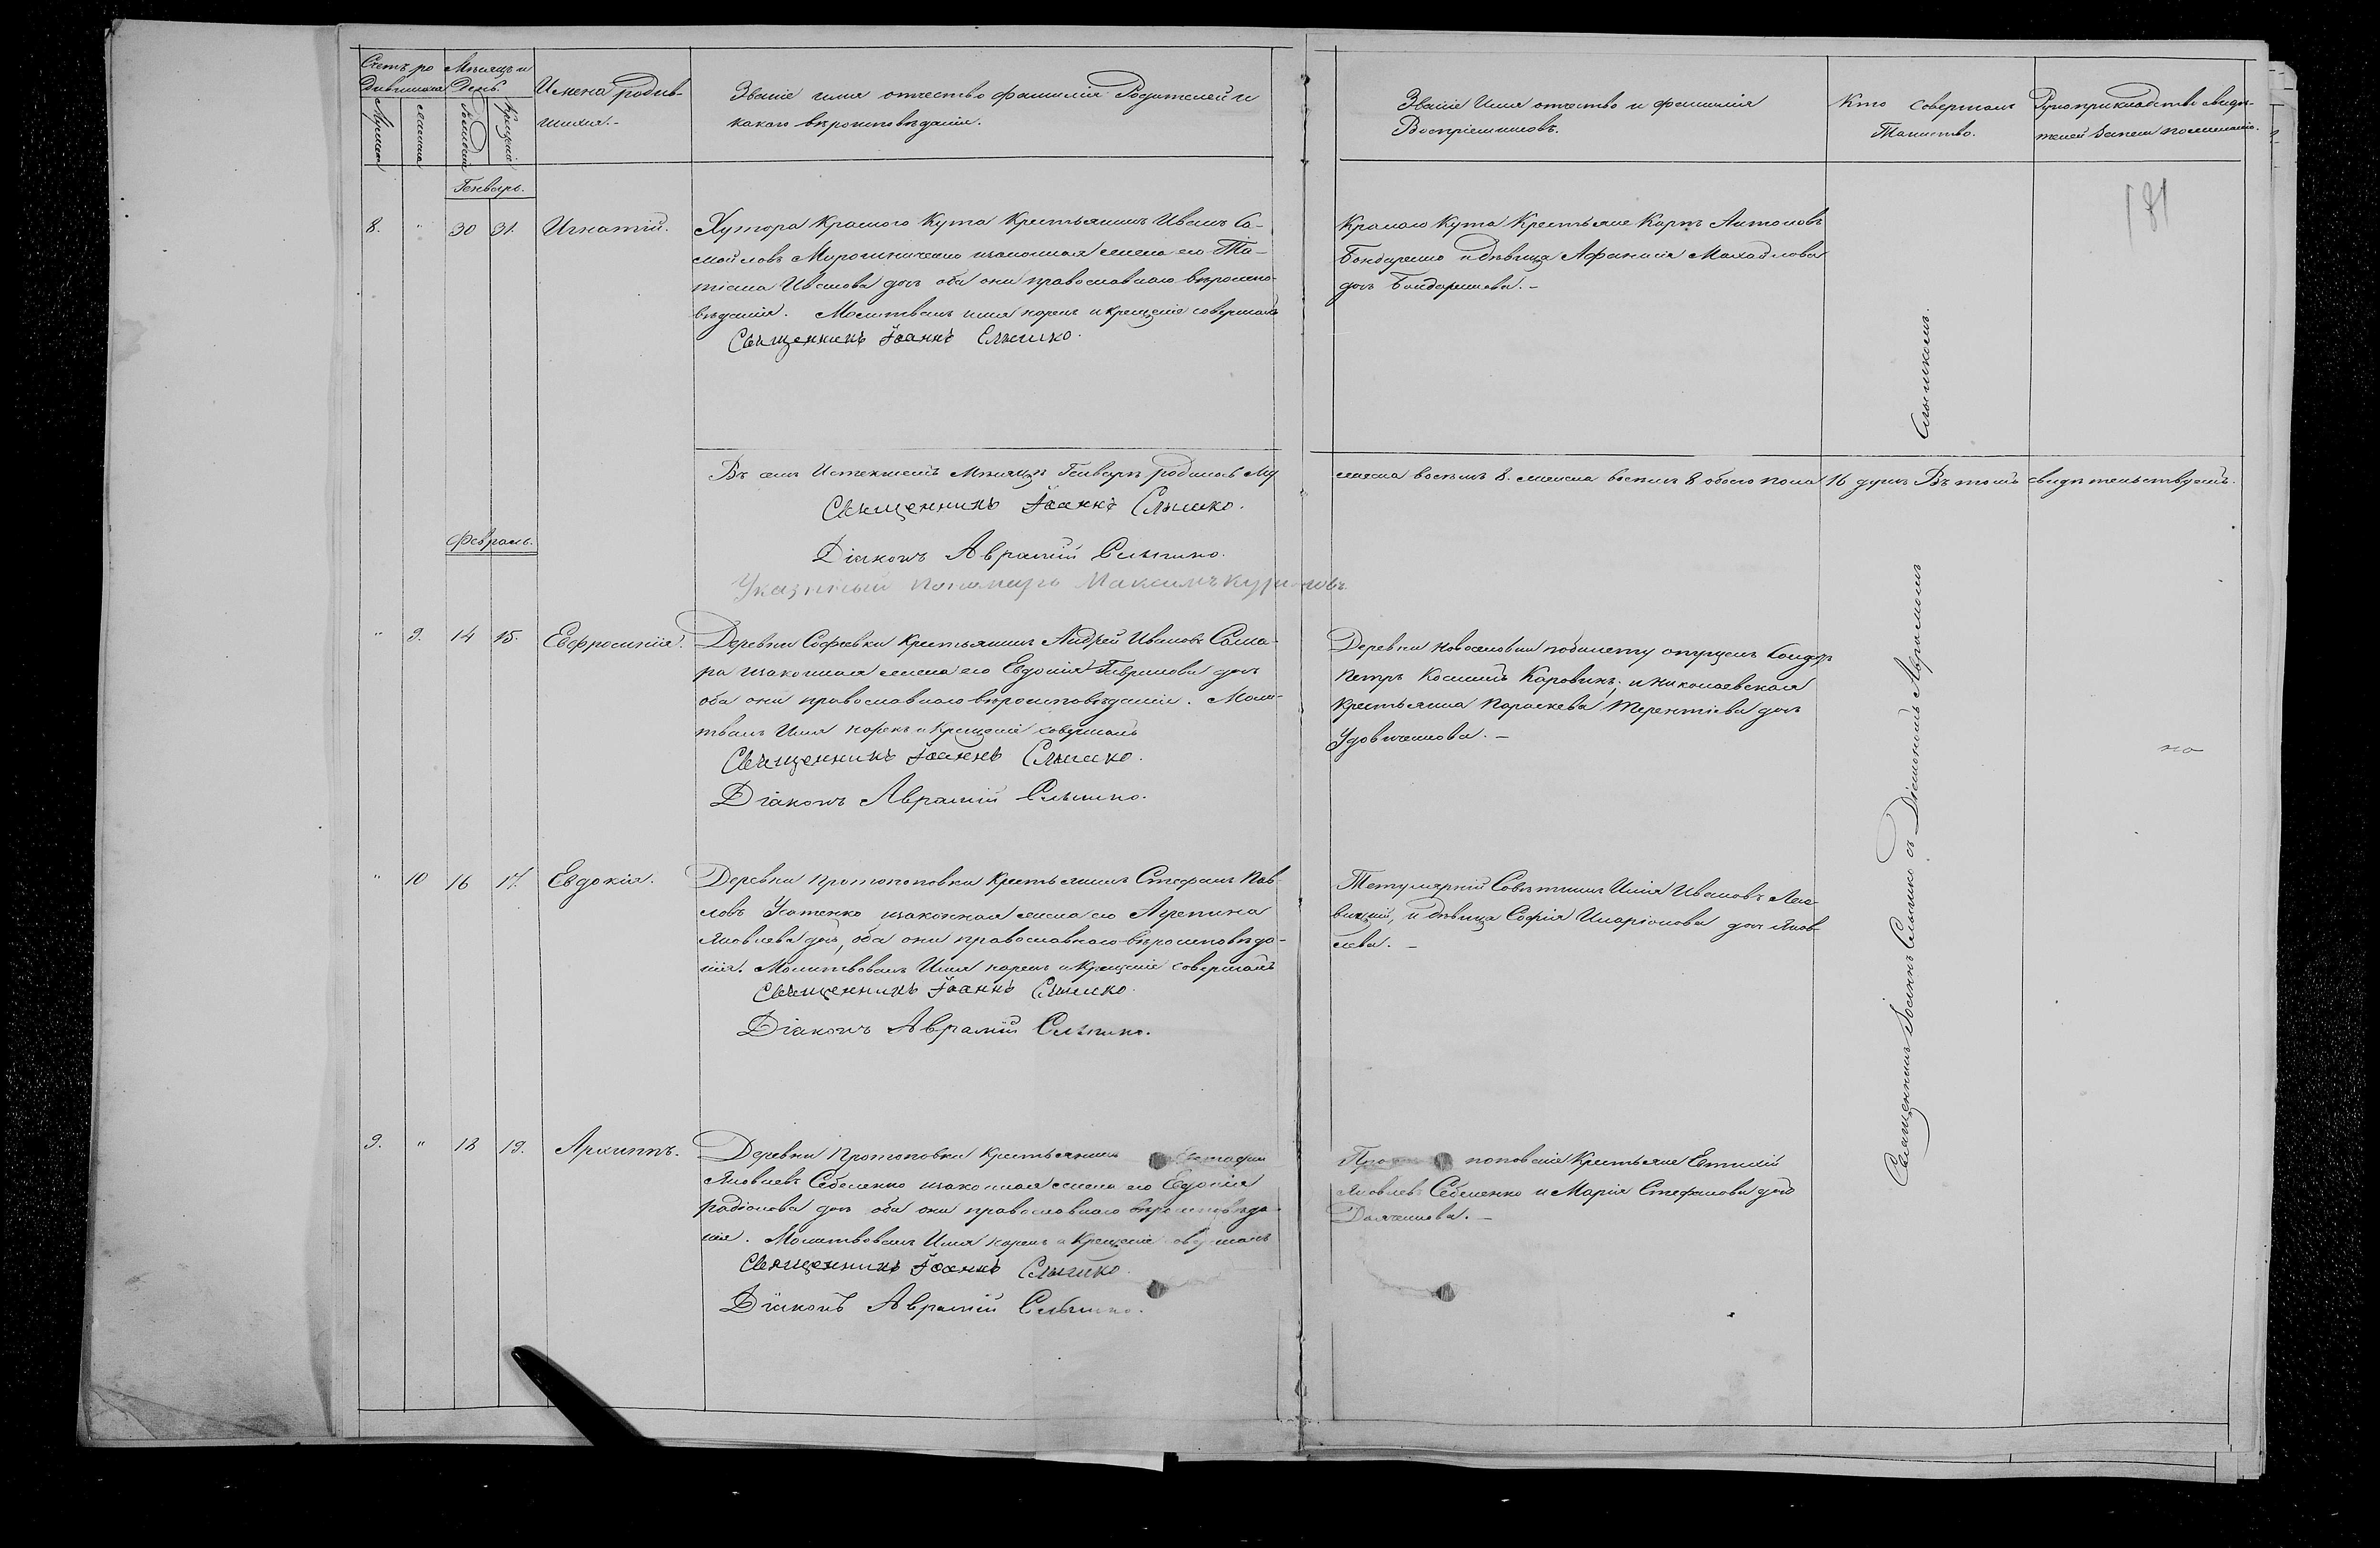 Счетъ ро
дившихся
Мѣсяцъ и
День.
Имена родив-
шихся.-
Званіе имя отчество фамилія Родителей и
какого вѣроисповѣданія.
Званіе Имя отчество и фамилія
Воспріемниковъ.
Кто совершалъ
Таинство.
Рукоприкладство свидѣ-
телей записи по желанію.
Мужеска
женска
Рожденія
Крещенія
Генварь.
181
8. " 30 31. Игнатій.
Хутора Красного Кута Крестьянинъ Иванъ Са-
мойловъ Мирошниченко изаконная жена его Та-
тіана Иванова дочь оба они православнаго вѣроиспо-
вѣданія. Молитвалъ имя нарекъ икрещеніе совершалъ
Священникъ Іоаннъ Слышко.
Красного Кута Крестьяне Карпъ Антоновъ
Бондаренко и дѣвица Афанасія Михайлова
дочь Бондаренкова.-
Въ семъ Истекшемъ Мѣсяцѣ Генварѣ родилось му
жеска восемь 8. женска восемь 8 обоего пола 16 душъ Въ томъ свидѣтельствуемъ.
Священникъ Іоаннъ Слышко.
Діаконъ Аврамій Слышко.
Указный пономарь Максимъ
Февраль.
" 9. 14 15. Евфросинія.
Деревни Софіевки Крестьянинъ Андрей Ивановъ Сама-
ра изаконная жена его Евдокія Гаврилова дочь
оба они православнаго вѣроисповѣданія. Моли-
твалъ Имя нарекъ и Крещеніе совершалъ
Священникъ Іоаннъ Слышко.
Діаконъ Аврамій Слышко.
Деревни Новоселовки побилету отпущен Солдатъ
Петръ Косминъ Каровикъ, и николаевская
Крестьянка Параскева Терентіева дочь
Удовиченкова.-
" 10 16 17. Евдокія.
Деревни Протопоповки Крестьянинъ Стефанъ Пав-
ловъ Усатенко изаконная жена его Агрепина
Яковлева дочь, оба они православнаго вѣроисповѣда-
нія. Молитвовалъ Имя нарекъ и Крещеніе совершалъ
Священникъ Іоаннъ Слышко.
Діаконъ Аврамій Слышко.
Титулярній Совѣтникъ Илія Ивановъ Лева-
вицкій, и дѣвица Софія Иларіонова дочь Яков-
лева.-
9. " 18 19. Архиппъ.
Деревни Протоповки Крестьянинъ
Яковлевъ Себеленко изаконная жена его Евдокія
Радіонова дочь оба они православнаго вѣроисповѣда-
нія. Молитвовалъ Имя нарекъ и Крещеніе совершалъ
Священникъ Іоаннъ Слышко.
Діаконъ Аврамій Слышко.
поповскіе Крестьяне Евтихій
Яковлевъ Себеленко и Марія Стефанова дочь
Долженкова.-
Священникъ Іоаннъ Слышко съ Діакономъ Аврамомъ Слышкомъ.
по